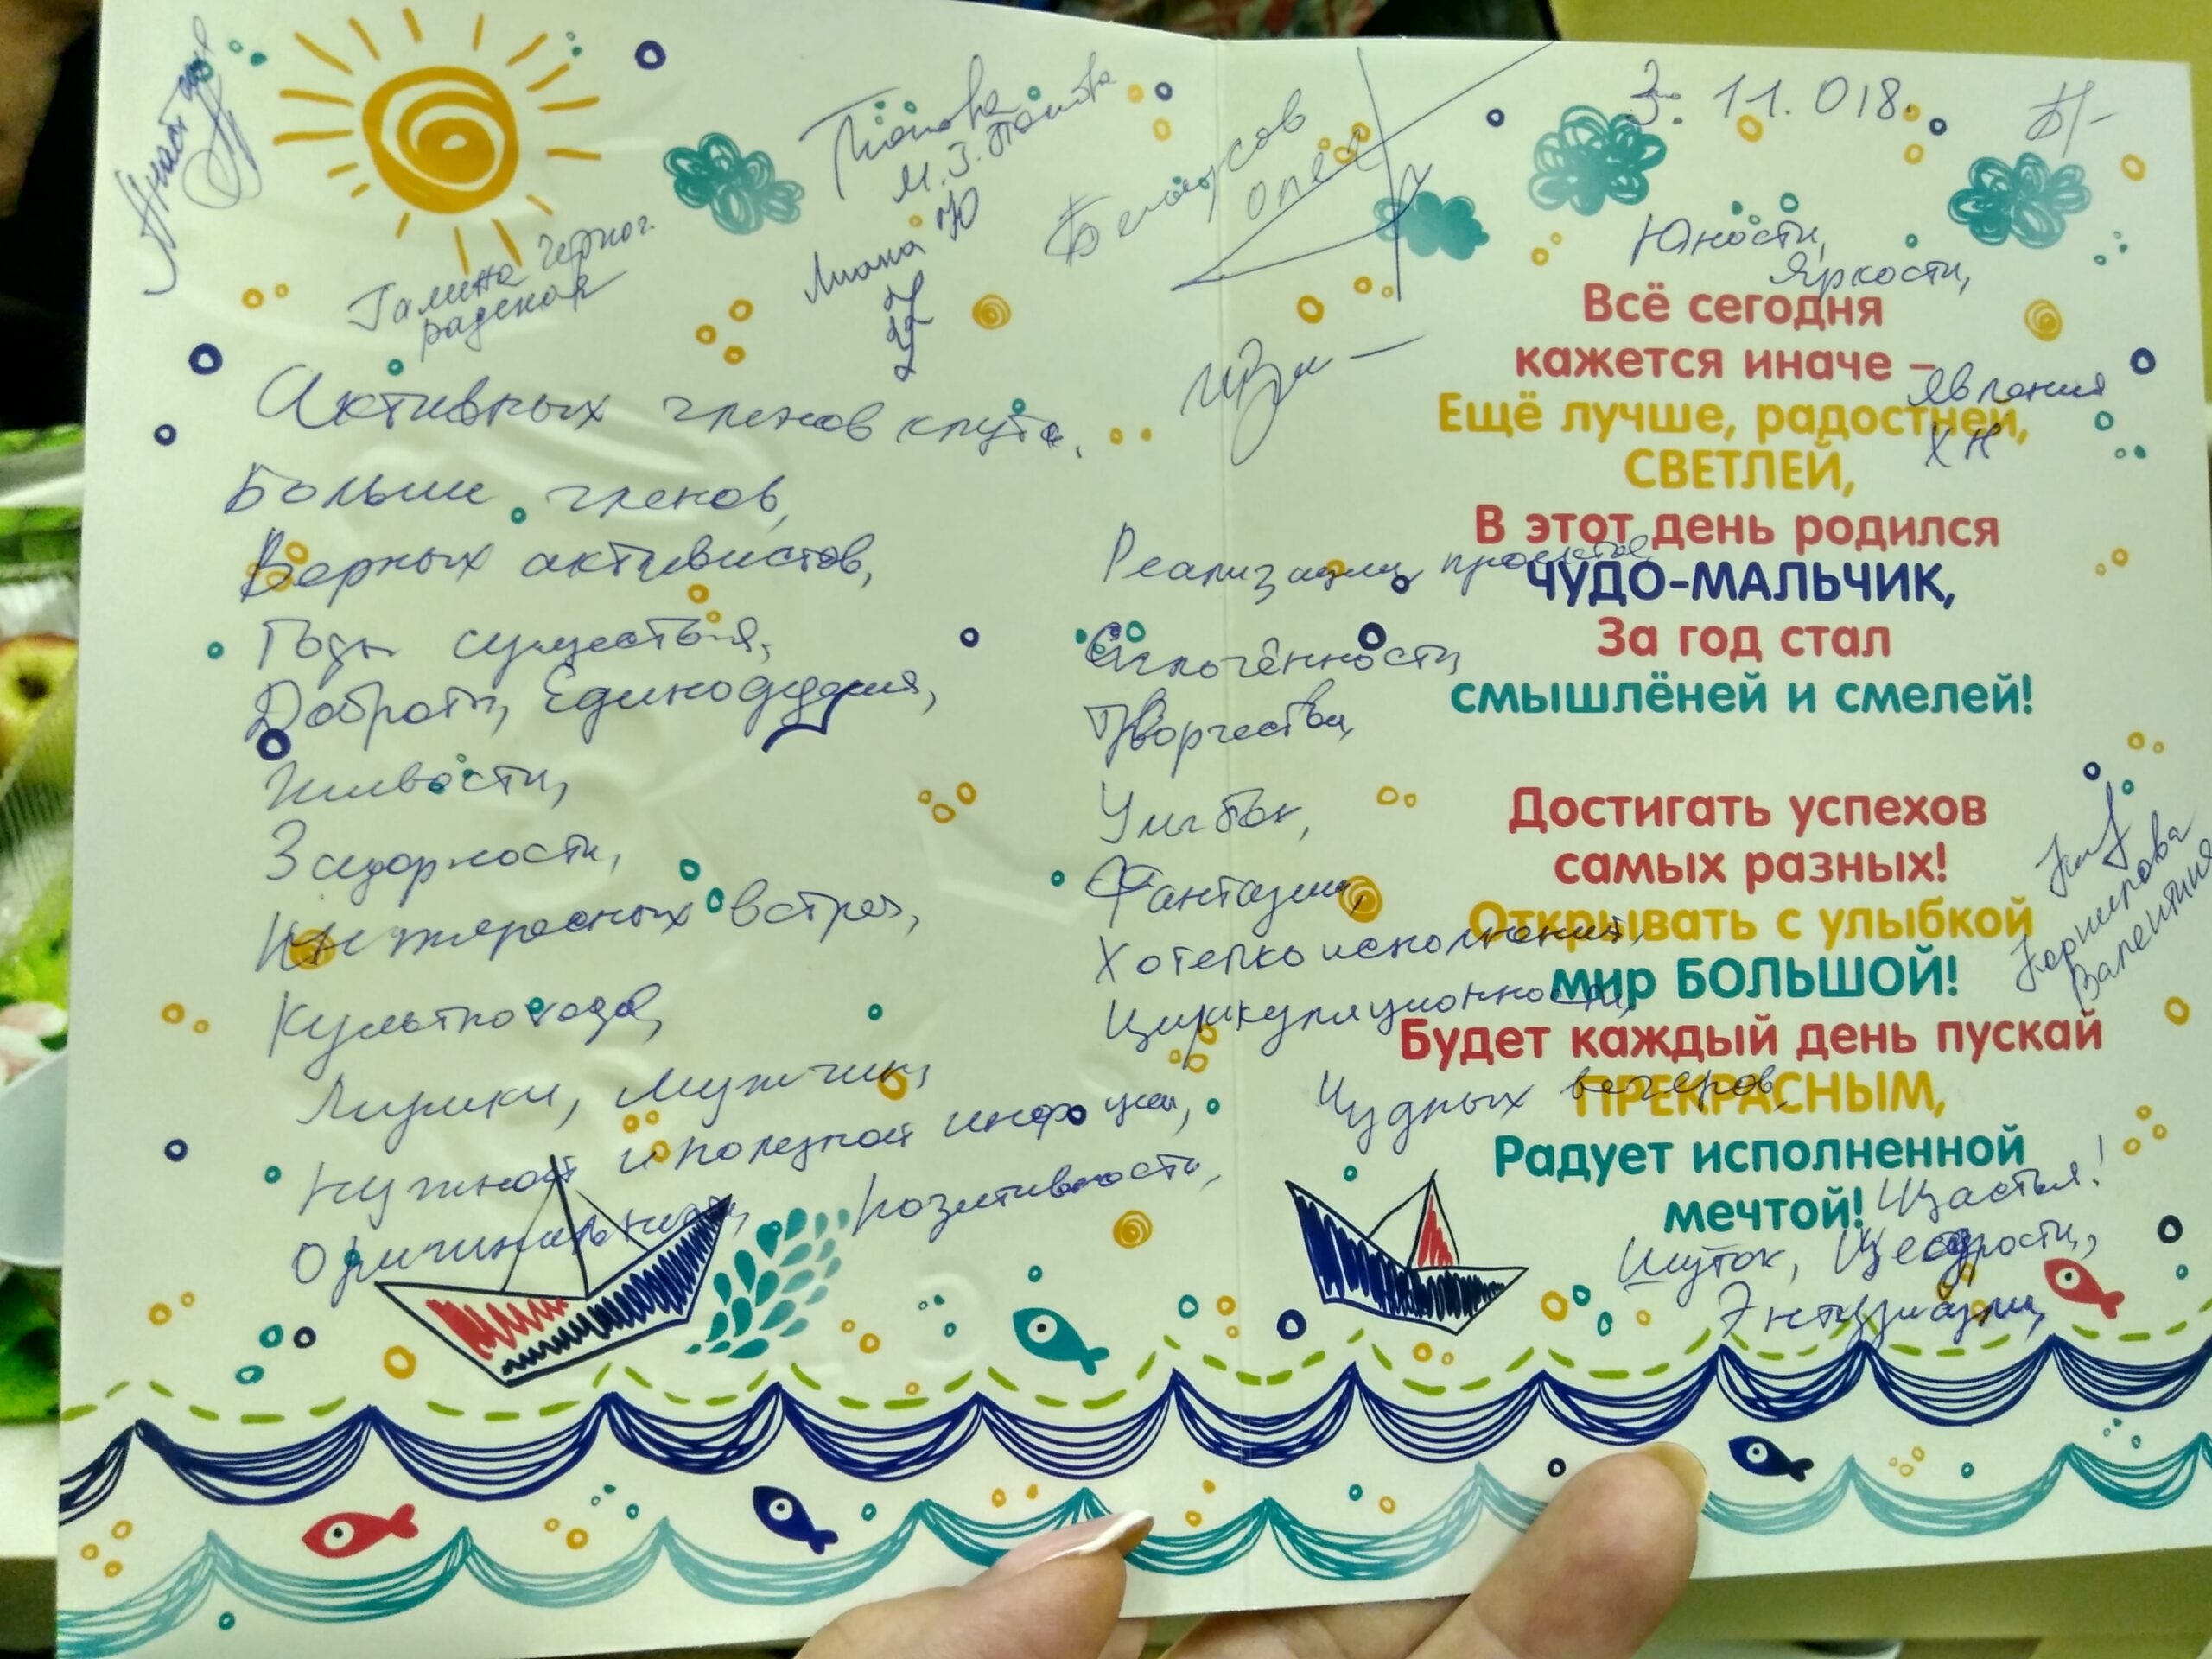 Галина Черног.
радская
Панова
М.З. Панова
Лиана Ю
Белоусов
Олег
3. 11. 018.
Активных членов клуба,
Больше членов,
Верных активистов,
Годы существ-я,
Доброты, Единодушия,
Живости,
Задорности,
Интересных встреч,
Культпоходов,
Лирики, Мужчин,
Нужной и полезной инфо ции,
Оригинальности, позитивность,
Реализации проектов,
Сплочённости,
Творчества,
Улыбок,
Фантазии,
Хотелкоисполнения,
Циркуляционности,
Чудных вечеров,
Шуток, Щедрости,
Щастья!
Энтузиазма,
Юности,
Яркости,
Явления
ХН
Всё сегодня
кажется иначе –
Ещё лучше, радостней,
СВЕТЛЕЙ,
В этот день родился
ЧУДО-МАЛЬЧИК,
За год стал
смышлёней и смелей!
Достигать успехов
самых разных!
Открывать с улыбкой
мир БОЛЬШОЙ!
Будет каждый день пускай
ПРЕКРАСНЫМ,
Радует исполненной
мечтой!
Корнилова
Валентина